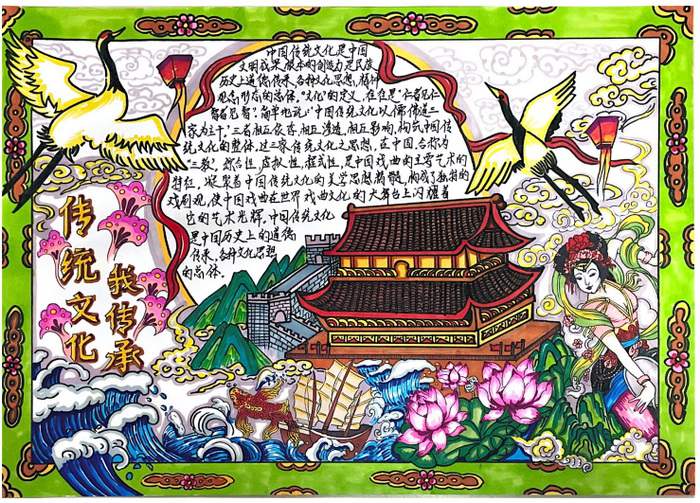 中国传统文化是中国
文明成果根本的创造力是民族
历史上道德传承、各种文化思想、精神
观念形态的总体。"文化"的定义,往往是"仁者见仁
智者见智",简单地说:中国传统文化以儒佛道三
家为主干,三者相互依存,相互渗透,相互影响,构筑中国传
统文化的整体,这三家传统文化之思想,在中国古称为
"三教",综合性,虚拟性,程式性,是中国戏曲的主要艺术的
特征,凝聚着中国传统文化的美学思想精髓,构成了独特的
戏剧观,使中国戏曲在世界戏曲文化的大舞台上闪耀着
它的艺术光辉,中国传统文化
是中国历史上的道德
传承、各种文化思想
的总体
传统文化
我传承